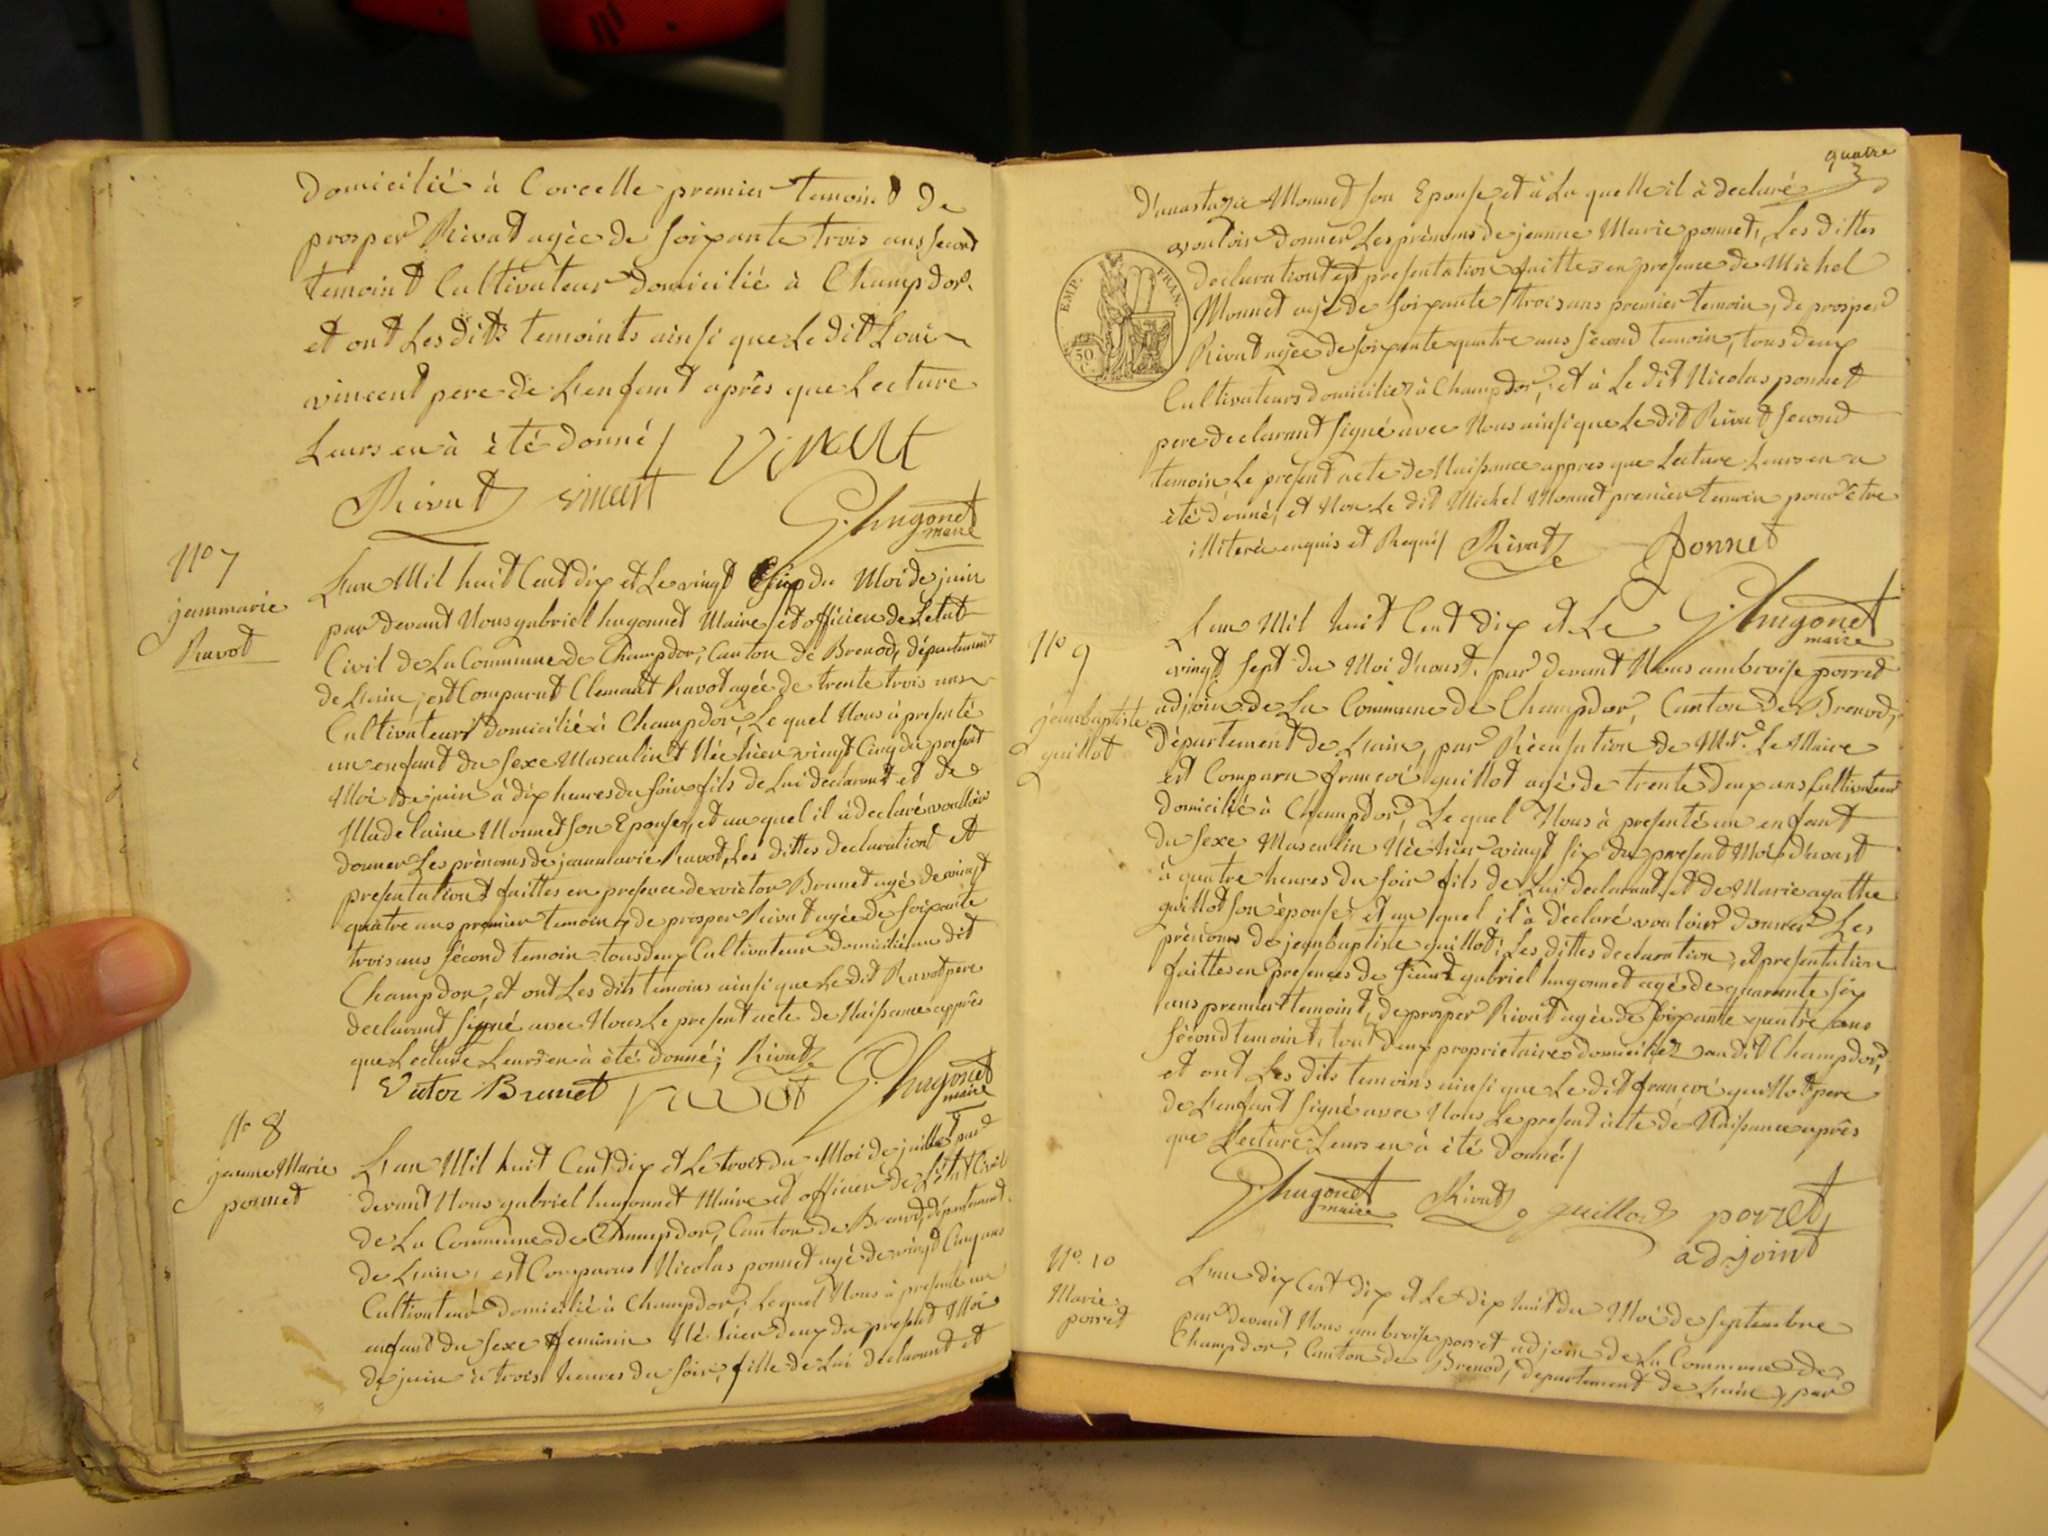 Domicilié à Corcelle premier temoint De
prosper Rivat agée de soixante trois ans second
temoint Cultivateur Domicilié à Champdor.
et ont Les dits temoints ainsi que Le dit Loui
vincent pere de L'enfant après que Lecture
Leurs en à été donné / Vincent
Rivat vincent
G. hugonet
maire
N° 7
jeanmarie
Ravot
L'an Mil huit Cent dix et Le vingt six du Moi de juin
par devant Nous gabriel hugonnet Maire et officier de L'etat
Civil de La Commune de Champdor, Canton de Brenod, département
de L'ain, est Comparut Clemant Ravot agée de trente trois ans
Cultivateur domicilié à Champdor, Le quel Nous à presenté
un enfant du sexe Masculint Née hier vingt Cinq du present
Moi de juin à dix heures du soir fils de Lui declarant et de
Madelaine Monnet son Epouse, et au quel il à declaré vouloir
donner Les prénoms de jeanmarie Ravot, Les dittes declarationt et
presentationt faittes en presence de victor Brunet agé de vingt
quatre ans premier temoin, de prosper Rivat agée de soixante
trois ans sécond temoin tous deux Cultivateur domicilié au dit
Champdor, et ont Les dits temoins ainsi que Le dit Ravot pere
declarant signé avec Nous Le present acte de Naissance apprès
que Lecture Leurs en à été donné; Rivat
Victor Brunet ravot G. hugonet
maire
N° 8
jeanne Marie
ponnet
L'an Mil huit Cent dix et Le trois du Moi de juillet par
devant Nous gabriel hugonnet Maire et officier de L'état Civil
de La Commune de Champdor, Canton de Brenod, département
de L'ain, est Comparus Nicolas ponnet agé de vingt Cinq ans
Cultivateur domicilié à Champdor, Lequel Nous à presenté un
enfant du sexe feminin Né hier deux du present Moi
de juin à trois heures du soir, fille de Lui declarant et
quatre
d'anastazie Monnet son Epouse, et à La quelle il à declaré
vouloir donner Les prénoms de jeanne Marie ponnet, Les dittes
declarationt et presentation faittes en presence de Michel
Monnet agé de soixante trois ans premier temoin, de prosper
Rivat agée de soixante quatre ans sécond temoin, tous deux
Cultivateurs domiciliez à Champdor, et à Le dit Nicolas ponnet
pere declarant signé avec Nous ainsi que Le dit Rivat second
temoin Le present acte de Naissance appres que Lecture Leurs en a
été donné, et Non Le dit Michel Monnet premier temoin pour être
illiteré enquis et Requis / Rivat ponnet
EMP. FRAN.
50
C.
G. hugonet
maire
N° 9
jeanbaptiste
guillot
L'an Mil huit Cent dix et Le
vingt sept du Moi d'aoust. par devant Nous ambroise porret
adjoin de La Commune de Champdor, Canton de Brenod,
département de L'ain, par Récusation de Mr. Le Maire
est Comparu françoi guillot agé de trente deux ans Cultivateur
domicilié à Champdor, Le quel Nous à presenté un enfant
du sexe Masculin Née hier vingt six du present Moi d'aoust
à quatre heures du soir fils de Lui declarant, et de Marie agathe
guillot son épouse, et au quel il à déclaré vouloir donner Les
prénoms de jeanbaptiste guillot, Les dittes declaration, et presentation
faittes en presences de sieur gabriel hugonnet agé de quarante six
ans premier temoint, de prosper Rivat agée de soixante quatre ans
sécond temoint, tout deux proprietaires domiciliez au dit Champdor,
et ont Les dits temoins ainsi que Le dit françoi guillot pere
de L'enfant signé avec Nous Le present acte de Naissance après
que Lecture Leurs en à été donné /
G. hugonet
maire Rivat guillot porret,
adjoint
N° 10
Marie
porret
L'an dix Cent dix et Le dix huit du Moi de septembre
par devant Nous ambroise porret adjoin de La Commune de
Champdor, Canton de Brenod, departement de L'ain, par